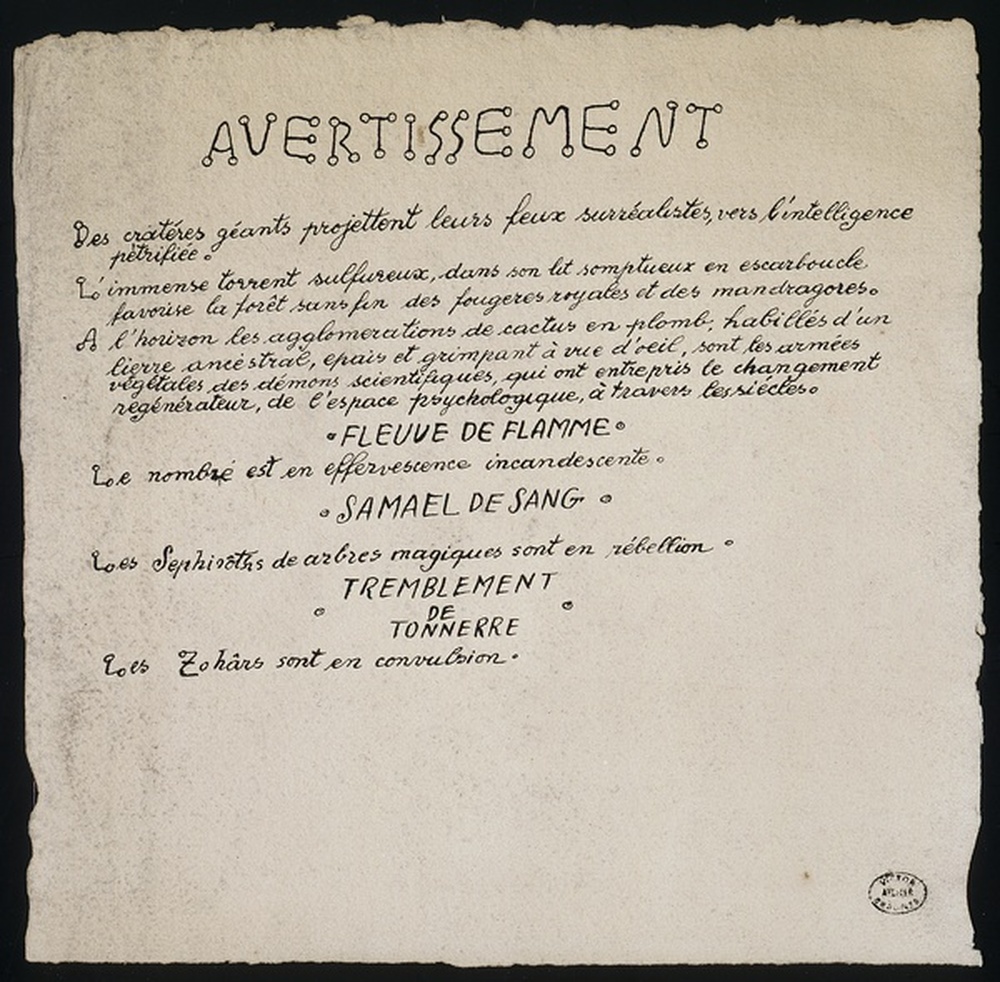 AVERTISSEMENT
Des cratéres géants projettent leurs feux surréalistes, vers l'intelligence
pétrifiée.
L'immense torrent sulfureux, dans son lit somptueux en escarboucle
favorise la forêt sans fin des fougeres royales et des mandragores.
A l'horizon les agglomerations de cactus en plomb, habillés d'un
lierre ancéstral, epais et grimpant à vue d'oeil, sont les armées
végétales des démons scientifiques, qui ont entrepris le changement
regénérateur, de l'espace psychologique, à travers les siécles.
• FLEUVE DE FLAMME •
Le nombre est en effervescence incandescente.
• SAMAEL DE SANG •
Les Sephirôths de arbres magiques sont en rébellion.
TREMBLEMENT
• DE •
TONNERRE
Les Zohârs sont en convulsion.
VICTOR
ATELIER